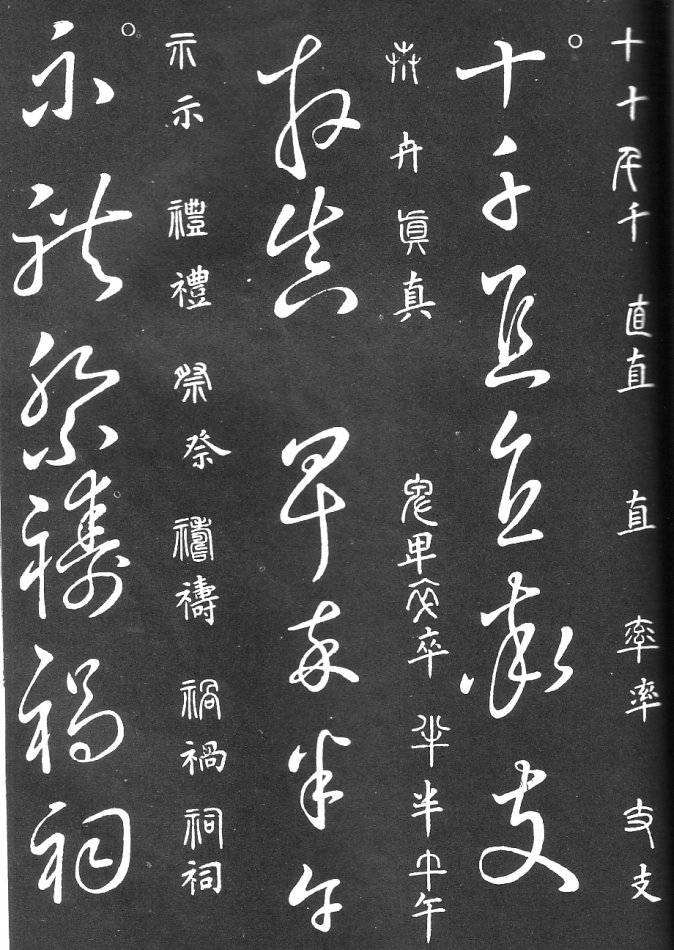 十十千千直直直率率支支
○十千直直率支
卉卉眞真卒卒半半午午
卉真卒半午
示示禮禮祭祭禱禱禍禍祠祠
○示禮祭禱禍祠